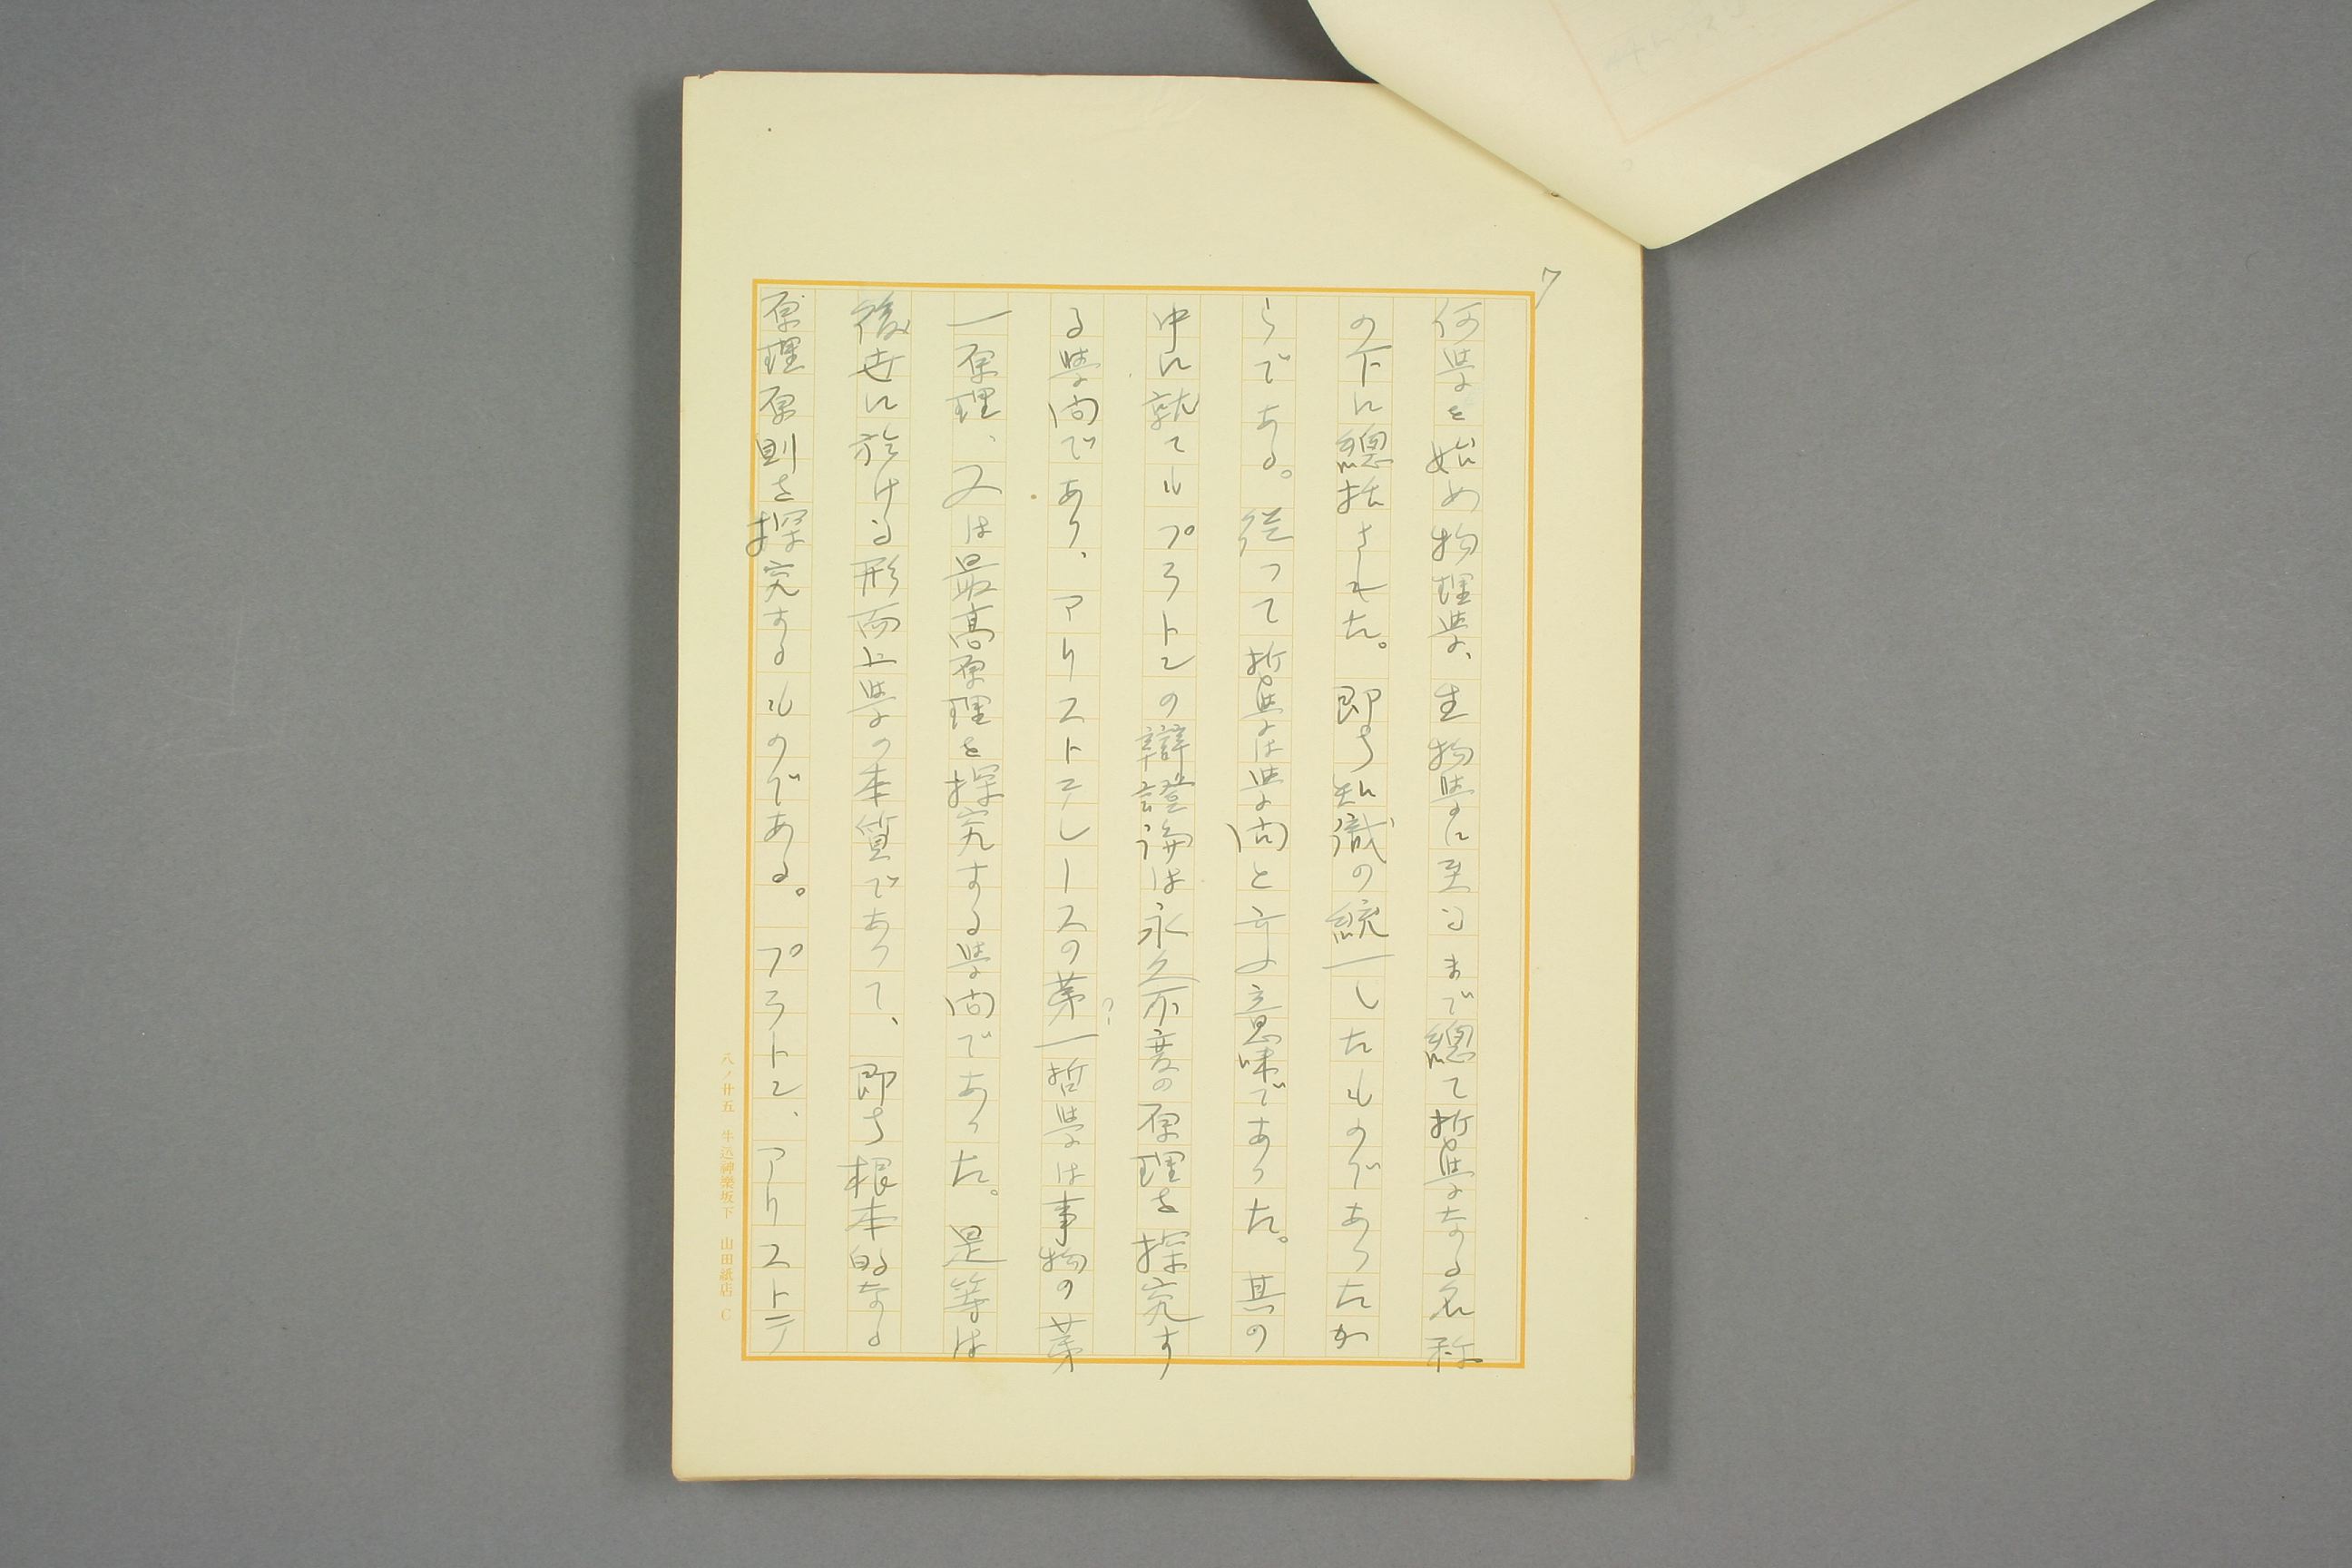 7
何学を始め物理学、生物学に至るまで總て哲学なる名称
の下に總括された。即ち知識の統一したものであったか
らである。従って哲学は学問と云ふ意味であった。其の
中に就てもプラトンの辯證論は永久不変の原理を探究す
る学問であり、アリストテレースの第一哲学は事物の第
?
一原理、又は最高原理を探究する学問であった。是等は
後世に於ける形而上学の本質であって、即ち根本的なる
原理原則を探究するものである。プラトン、アリストテ
八ノ廿五 牛込神樂坂下 山田紙店 C